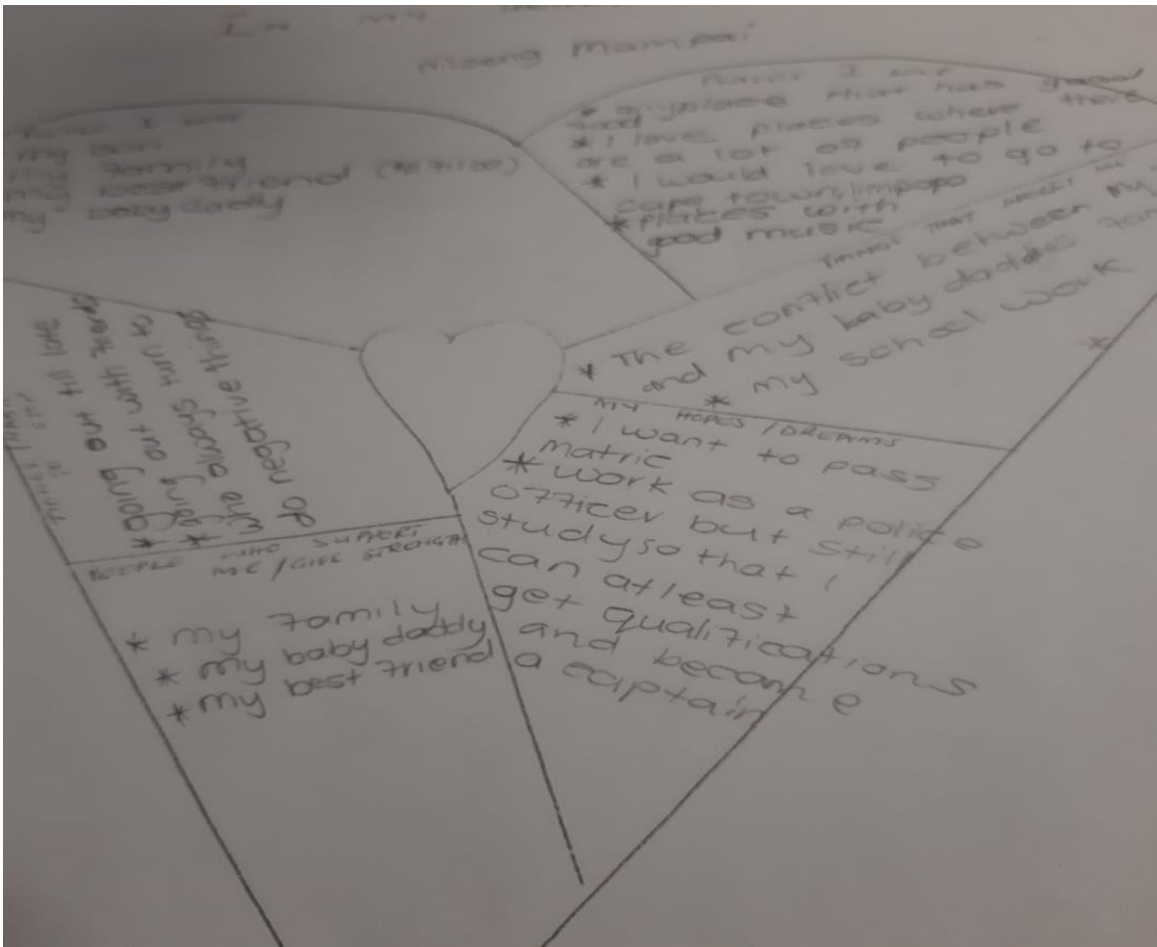 In my
Mampai
I love
my son
my family
my best friend
my baby daddy
Places I love
* any place that has good
food
* I love places where there
are a lot of people
* I would love to go to
cape town, limpopo
* places with
good music
THINGS THAT
* The conflict between my
and my baby daddies
* my school work
MY HOPES / DREAMS
* I want to pass
matric
* work as a police
officer but still
study so that I
can atleast
get qualifications
and become
a captain
PEOPLE WHO SUPPORT
ME / GIVE STRENGTH
* my family
* my baby daddy
* my best friend
THINGS
* going out till late
* going out with friends
who always turn to
do negative things